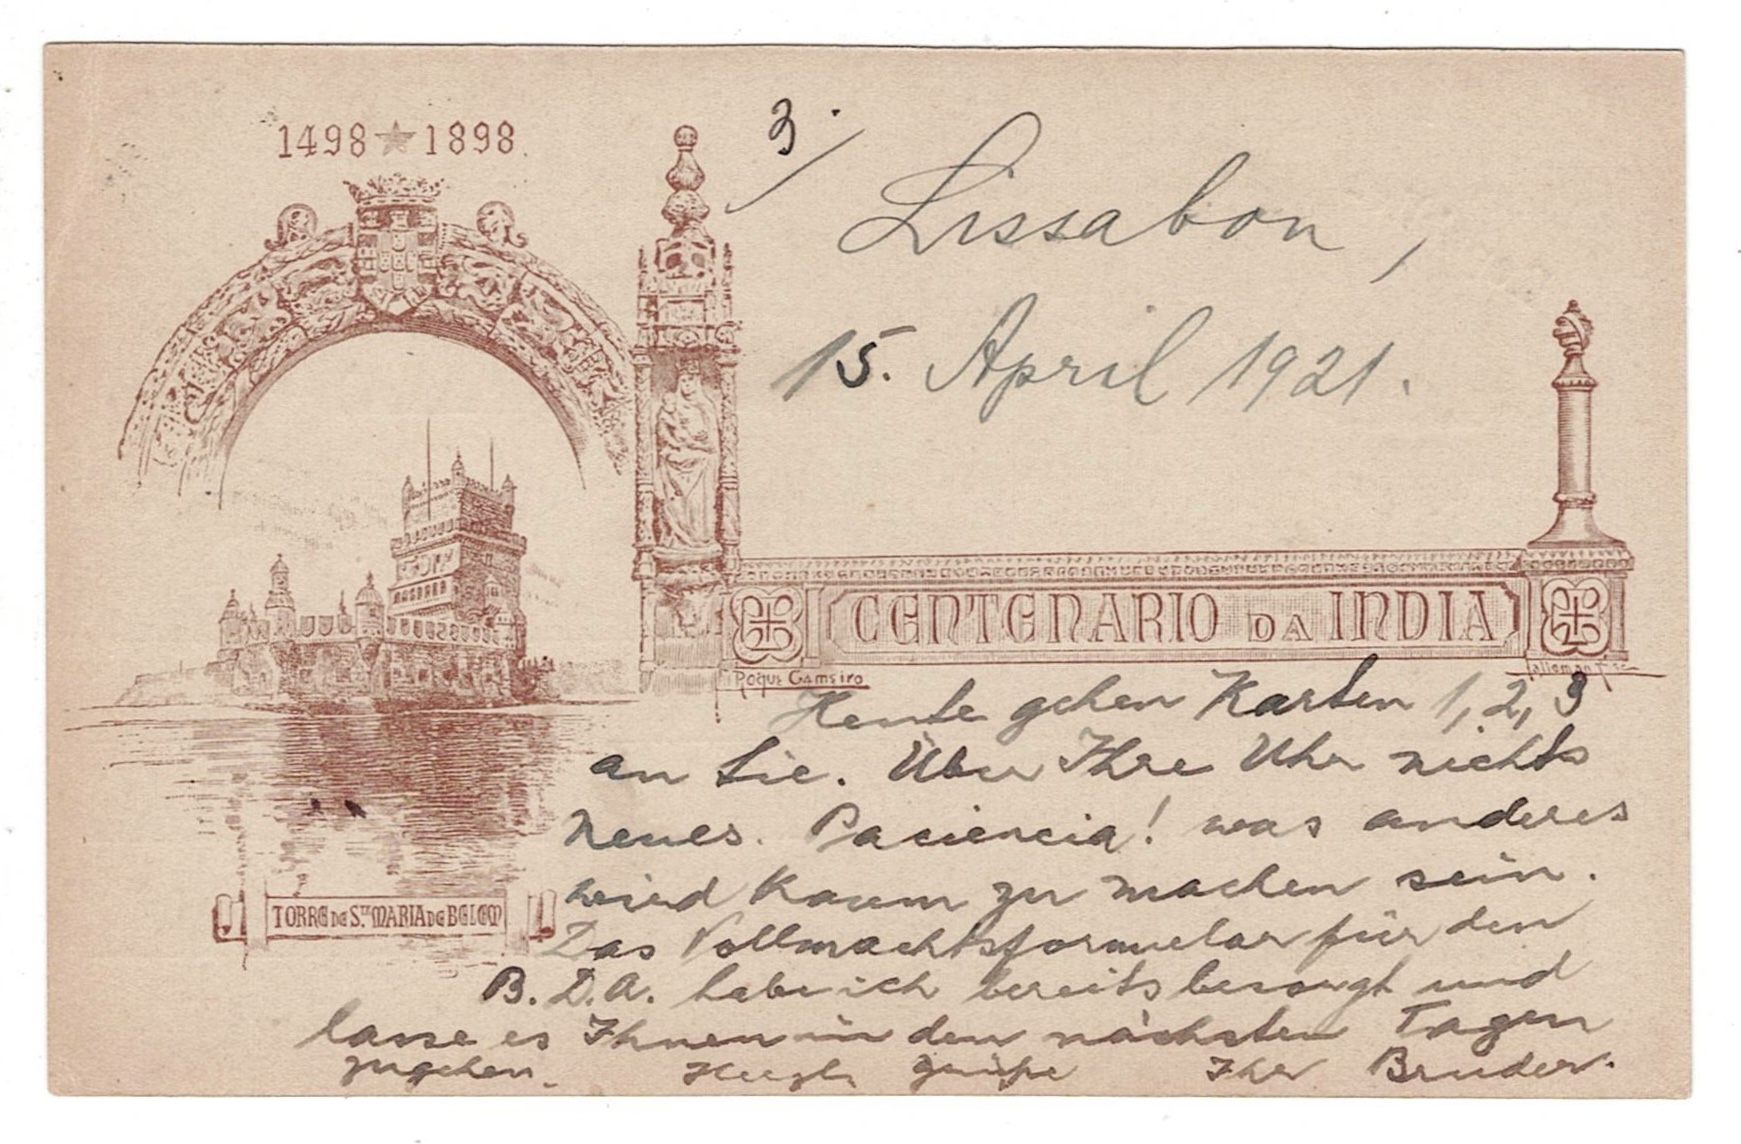 1498 ★ 1898.
3.
Lissabon,
15. April 1921.
CENTENARIO DA INDIA
Roque Gameiro
TORRE DE Sta MARIA DE BELEM
Heute gehen Karten 1, 2, 3
an Sie. Über Ihre Uhr nichts
neues. Paciencia! was anderes
wird kaum zu machen sein.
Das Vollmachtsformular für den
B. D. A. habe ich bereits besorgt und
lasse es Ihnen in den nächsten Tagen
zugehen. Herzl. Grüße Ihr Bruder.